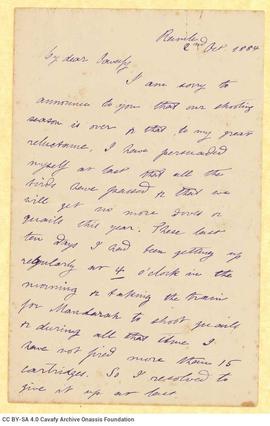 Ramleh
2nd Oct 1884
My dear Cavafy
I am sorry to
announce to you that our shooting
season is over & that to my great
reluctance. I have persuaded
myself at last that all the
birds have passed & that we
will get no more doves or
quails this year. These last
ten days I had been getting up
regularly at 4 o'clock in the
morning & taking the train
for Mandarah to shoot quails
& during all that time I
have not fired more than 15
cartridges. So I resolved to
give it up at last.
CC BY-SA 4.0 Cavafy Archive Onassis Foundation